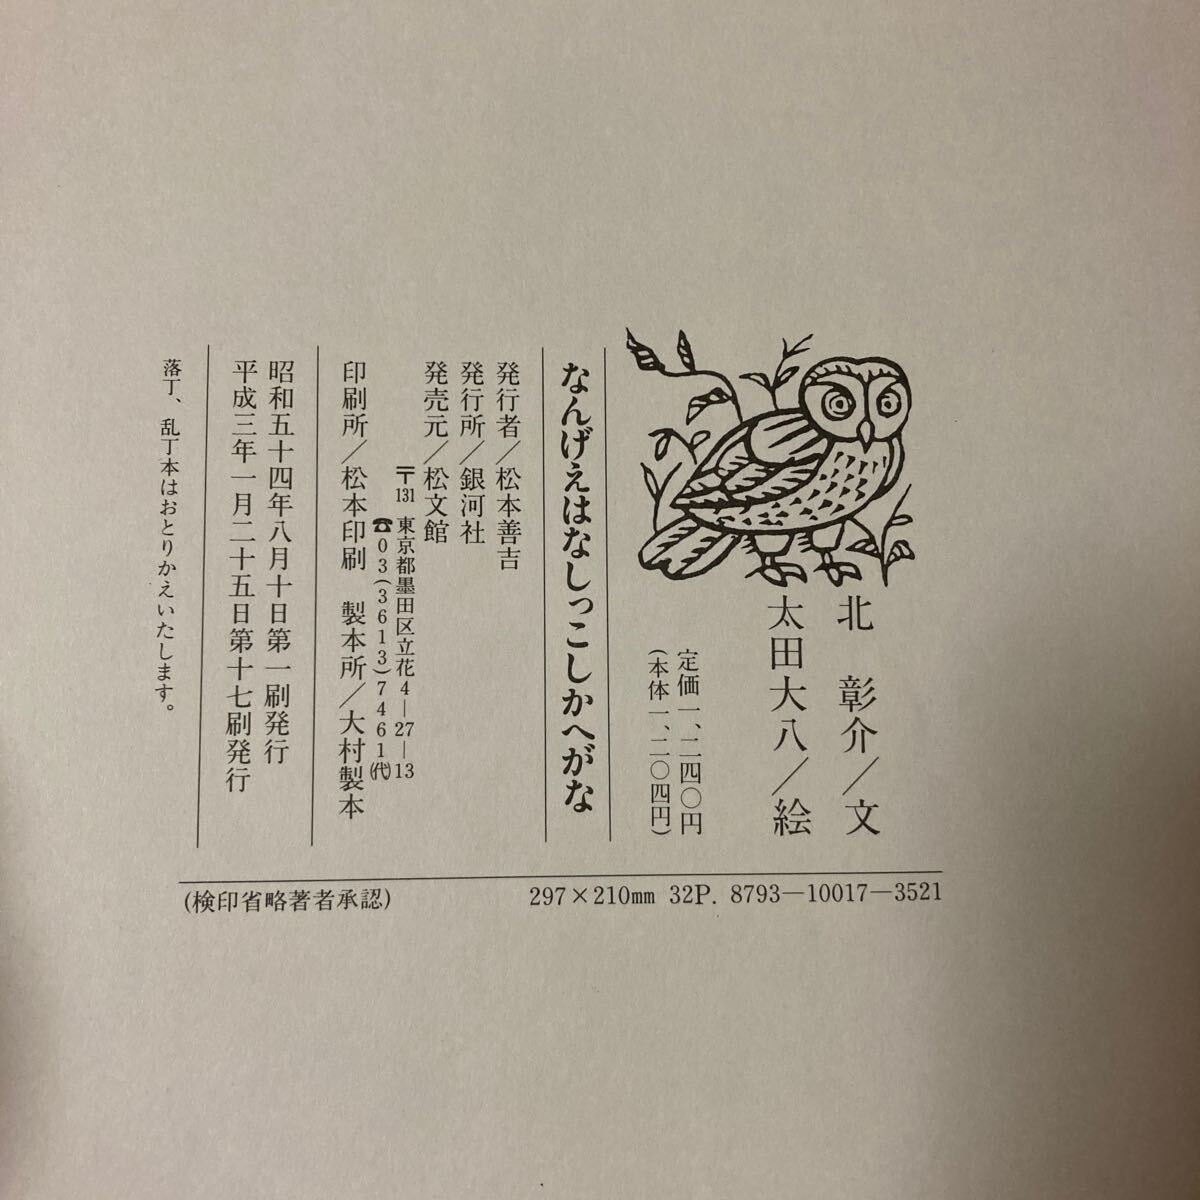 北　彰介／文
太田大八／絵
定価一、二四〇円
(本体一、二〇四円)
なんげえはなしっこしかへがな
発行者／松本善吉
発行所／銀河社
発売元／松文館
〒131 東京都墨田区立花4－27－13
☎03(3613)7461(代)
印刷所／松本印刷　製本所／大村製本
昭和五十四年八月十日第一刷発行
平成三年一月二十五日第十七刷発行
落丁、乱丁本はおとりかえいたします。
(検印省略著者承認)
297×210mm 32P. 8793―10017―3521